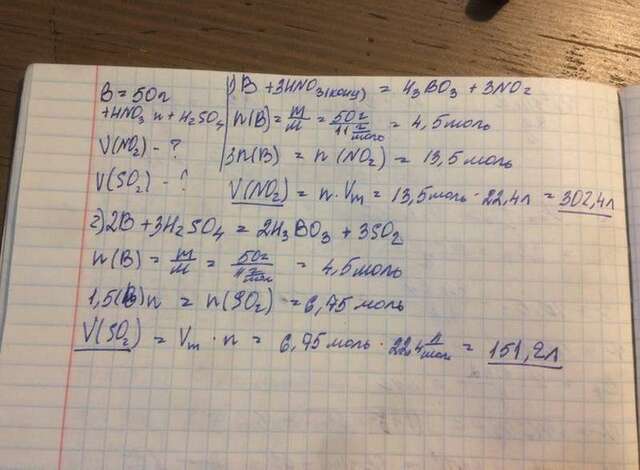 B = 50г
+HNO₃ и + H₂SO₄
V(NO₂) - ?
V(SO₂) - ?
1) B + 3HNO₃(конц) = H₃BO₃ + 3NO₂
n(B) = m/M = 50г / 11 г/моль = 4,5 моль
3n(B) = n(NO₂) = 13,5 моль
V(NO₂) = n · Vm = 13,5 моль · 22,4л = 302,4л
2) 2B + 3H₂SO₄ = 2H₃BO₃ + 3SO₂
n(B) = m/M = 50г / 11 г/моль = 4,5 моль
1,5(B)n = n(SO₂) = 6,75 моль
V(SO₂) = Vm · n = 6,75 моль · 22,4 л/моль = 151,2л